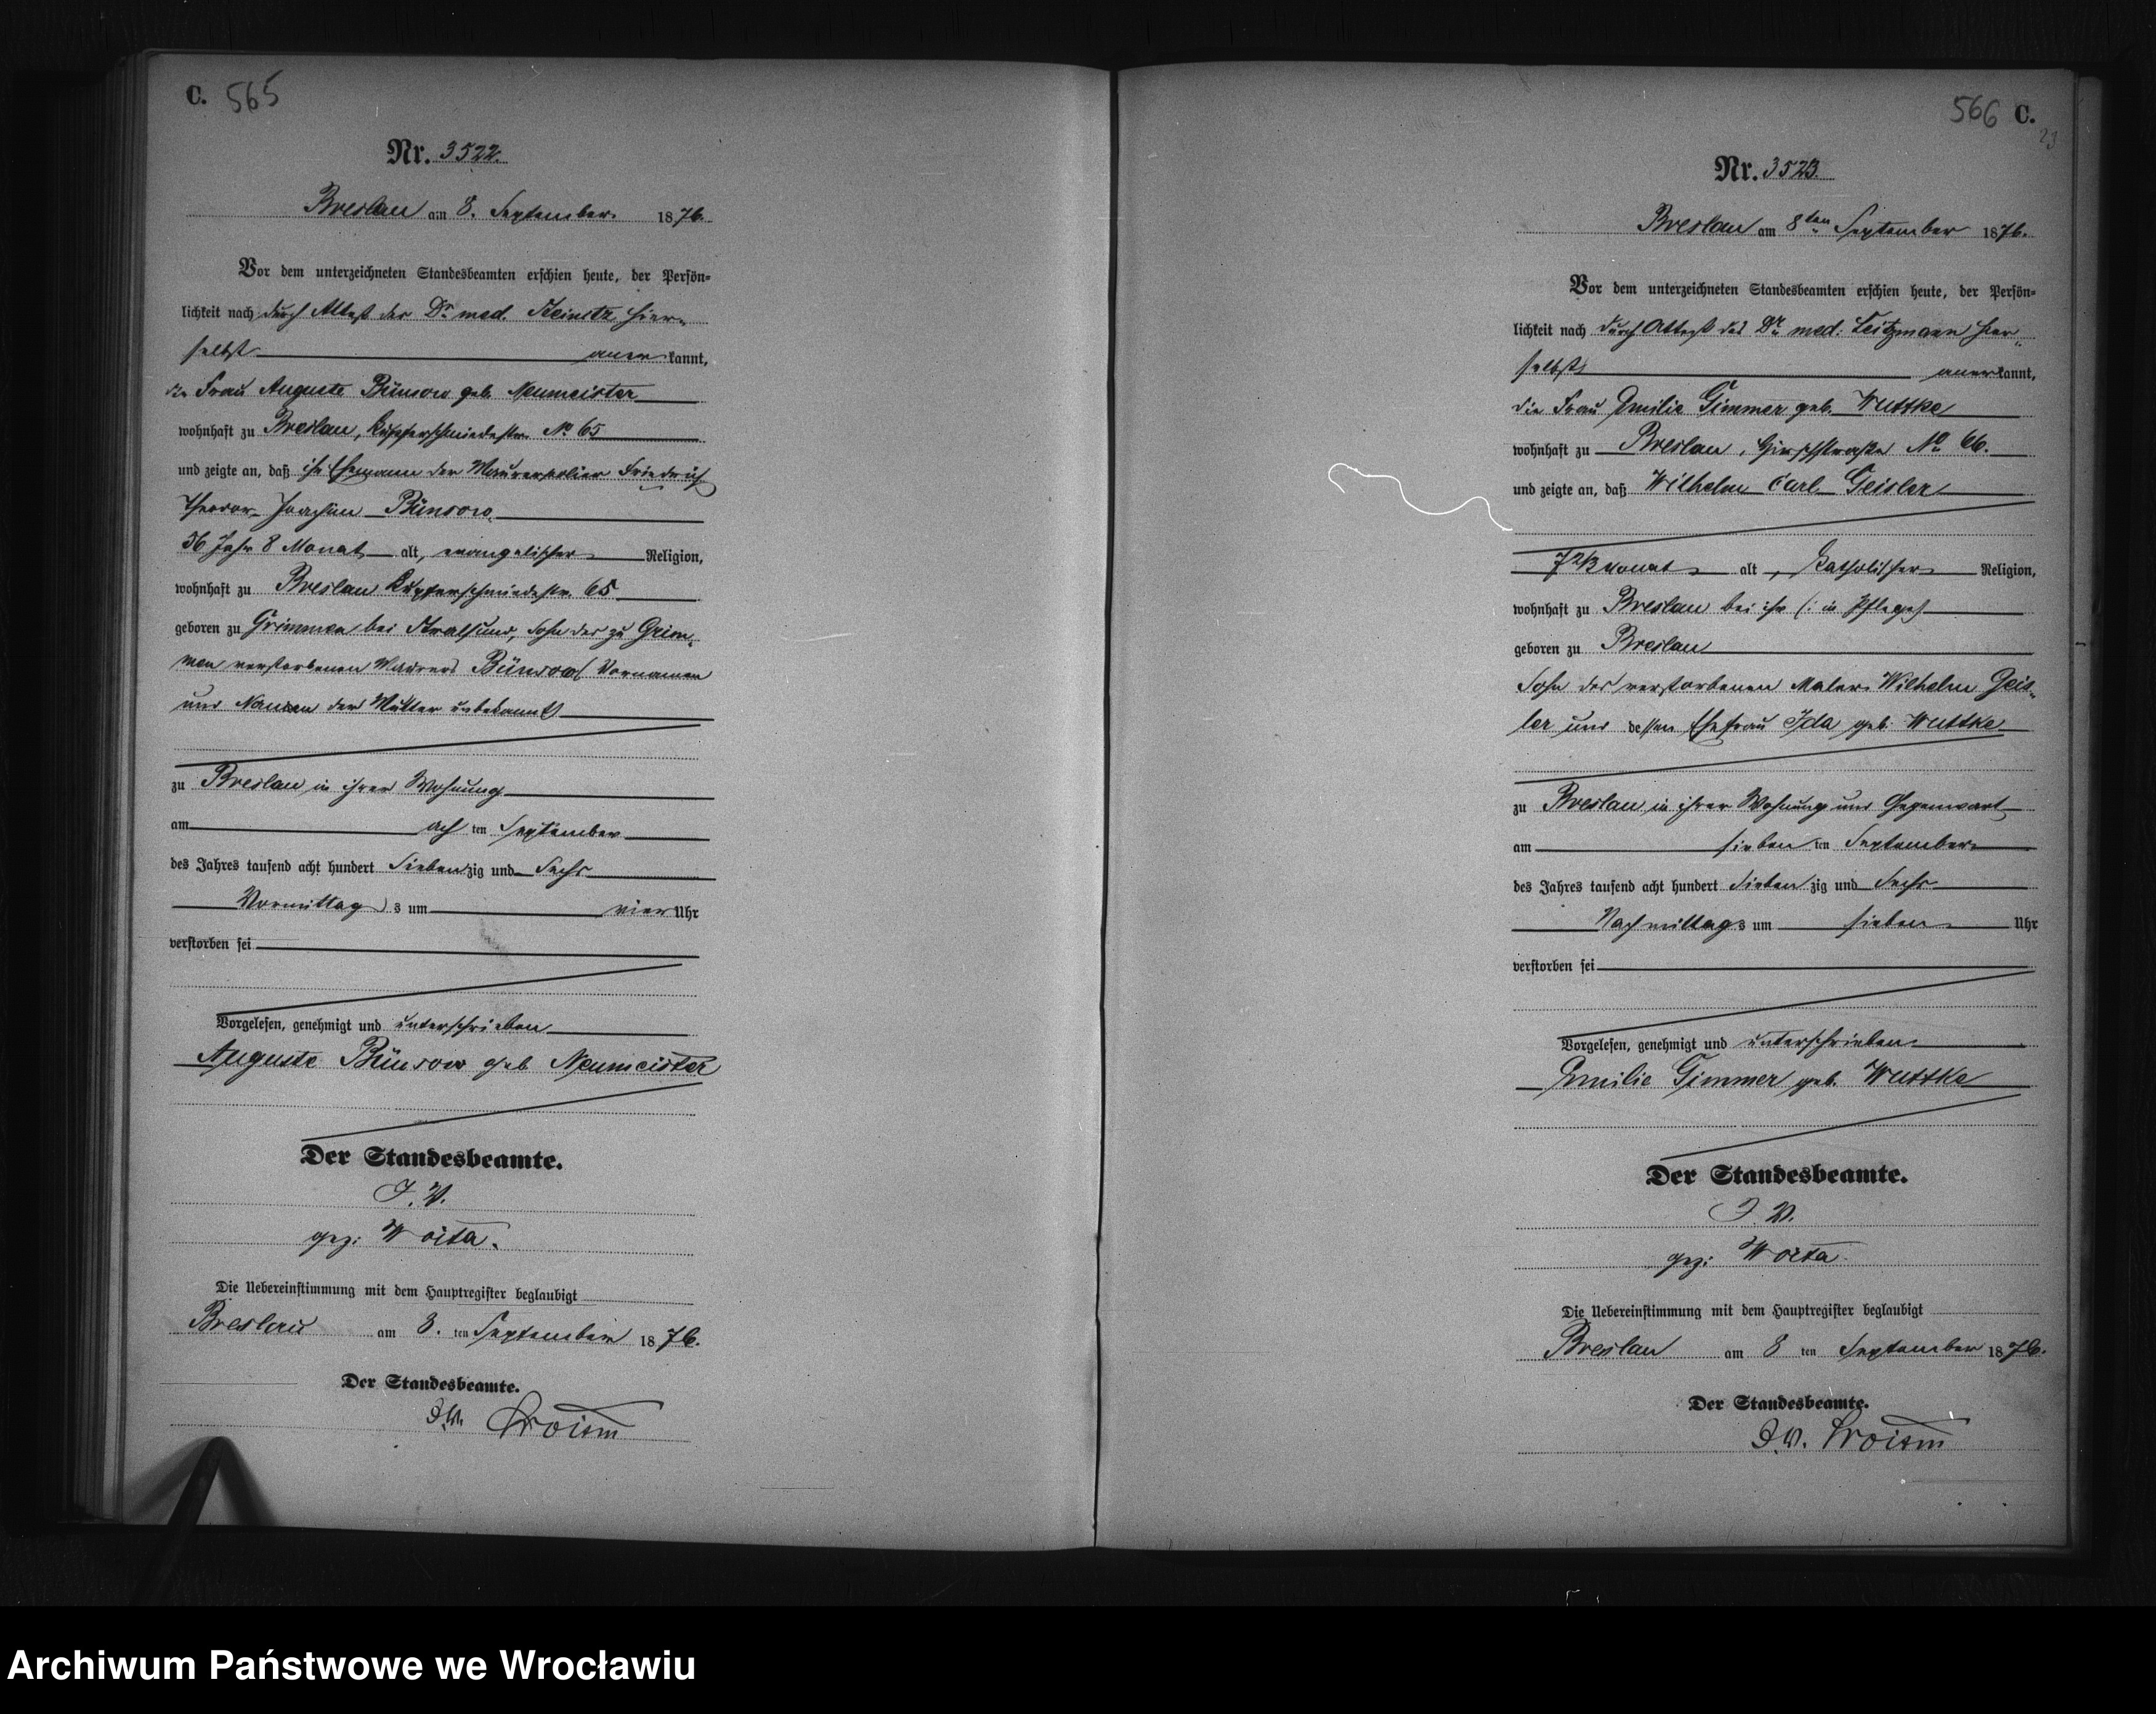 C. 565
Nr. 3522.
Breslau am 8. September 1876.
Vor dem unterzeichneten Standesbeamten erschien heute, der Persön=
lichkeit nach durch Attest des Dr. med. Steinitz hier=
selbst anerkannt,
die Frau Auguste Bünsow geb. Neumeister
wohnhaft zu Breslau, Kupferschmiedestr. No 65
und zeigte an, daß ihr Ehemann der Maurerpolier Friedrich
Theodor Joachim Bünsow,
36 Jahr 8 Monat alt, evangelischer Religion,
wohnhaft zu Breslau Kupferschmiedestr. 65
geboren zu Grimmen bei Stralsund, Sohn des zu Grim=
men verstorbenen Maurers Bünsow (Vornamen
und Namen der Mutter unbekannt)
zu Breslau in ihrer Wohnung
am achten September
des Jahres tausend acht hundert Siebenzig und Sechs
Vormittags um vier Uhr
verstorben sei
Vorgelesen, genehmigt und unterschrieben
Auguste Bünsow geb Neumeister
Der Standesbeamte.
I. V.
gez: Woita.
Die Uebereinstimmung mit dem Hauptregister beglaubigt
Breslau am 8. ten September 1876.
Der Standesbeamte.
I. V.
566 C.
23
Nr. 3523.
Breslau am 8ten September 1876.
Vor dem unterzeichneten Standesbeamten erschien heute, der Persön=
lichkeit nach durch Attest des Dr. med. Leitzmann hier=
selbst anerkannt,
die Frau Emilie Gimmer geb. Wuttke
wohnhaft zu Breslau, Hirschstraße No 66.
und zeigte an, daß Wilhelm Carl Geisler
7 2/3 Monat alt, Katholischer Religion,
wohnhaft zu Breslau bei ihr (: in Pflege)
geboren zu Breslau
Sohn des verstorbenen Maler Wilhelm Geis=
ler und dessen Ehefrau Ida geb. Wuttke
zu Breslau in ihrer Wohnung und Gegenwart
am siebenten September
des Jahres tausend acht hundert Siebenzig und Sechs
Nachmittags um sieben Uhr
verstorben sei
Vorgelesen, genehmigt und unterschrieben
Emilie Gimmer geb. Wuttke
Der Standesbeamte.
I. V.
gez: Woita.
Die Uebereinstimmung mit dem Hauptregister beglaubigt
Breslau am 8 ten September 1876.
Der Standesbeamte.
I. V.
Archiwum Państwowe we Wrocławiu